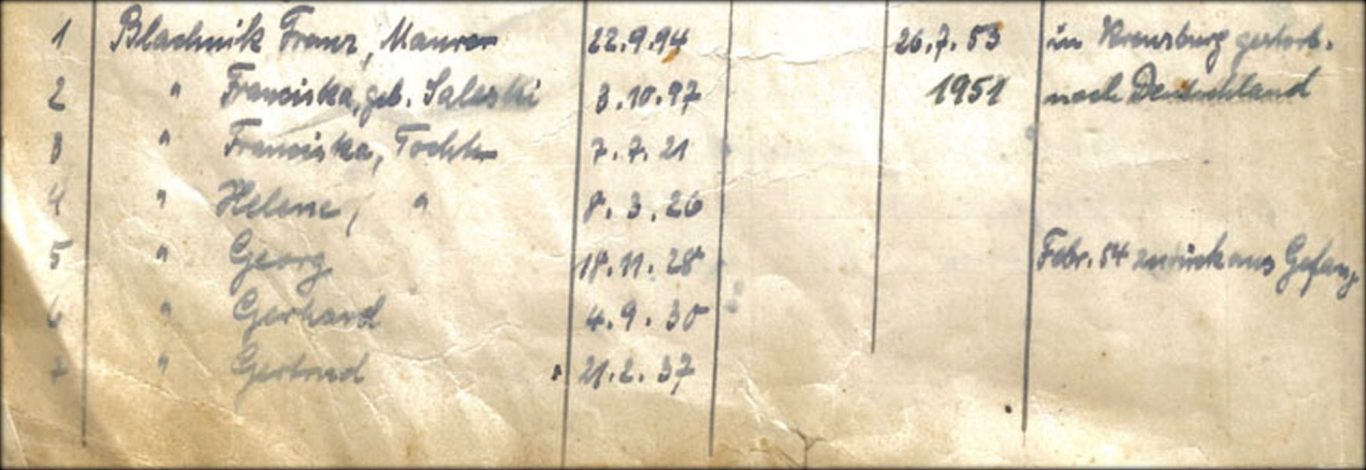 1 Blachnik Franz, Maurer 22.9.94 26.7.53 in Kreuzburg gestorb.
2 " Franciska, geb. Saleski 3.10.97 1951 nach Deutschland
3 " Franciska, Tochter 7.7.21
4 " Helene, " 8.3.26
5 " Georg 18.11.28 Febr. 54 zurück aus Gefang
6 " Gerhard 4.9.30
7 " Gertrud 21.2.37